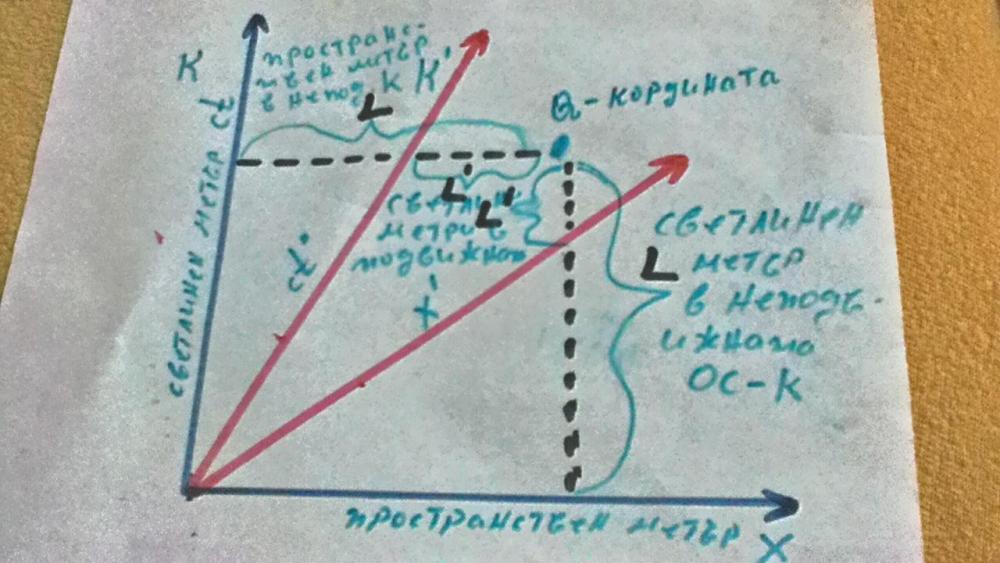 K
простране-
твен метър
в непод. K
L
K'
Q-кордината
светлинен метър
ct
L'
L'
светлин
метри в
подвижнат
ct'
x'
светлинен
L метър
в неподв-
ижната
ОС-К
пространствен метър
X